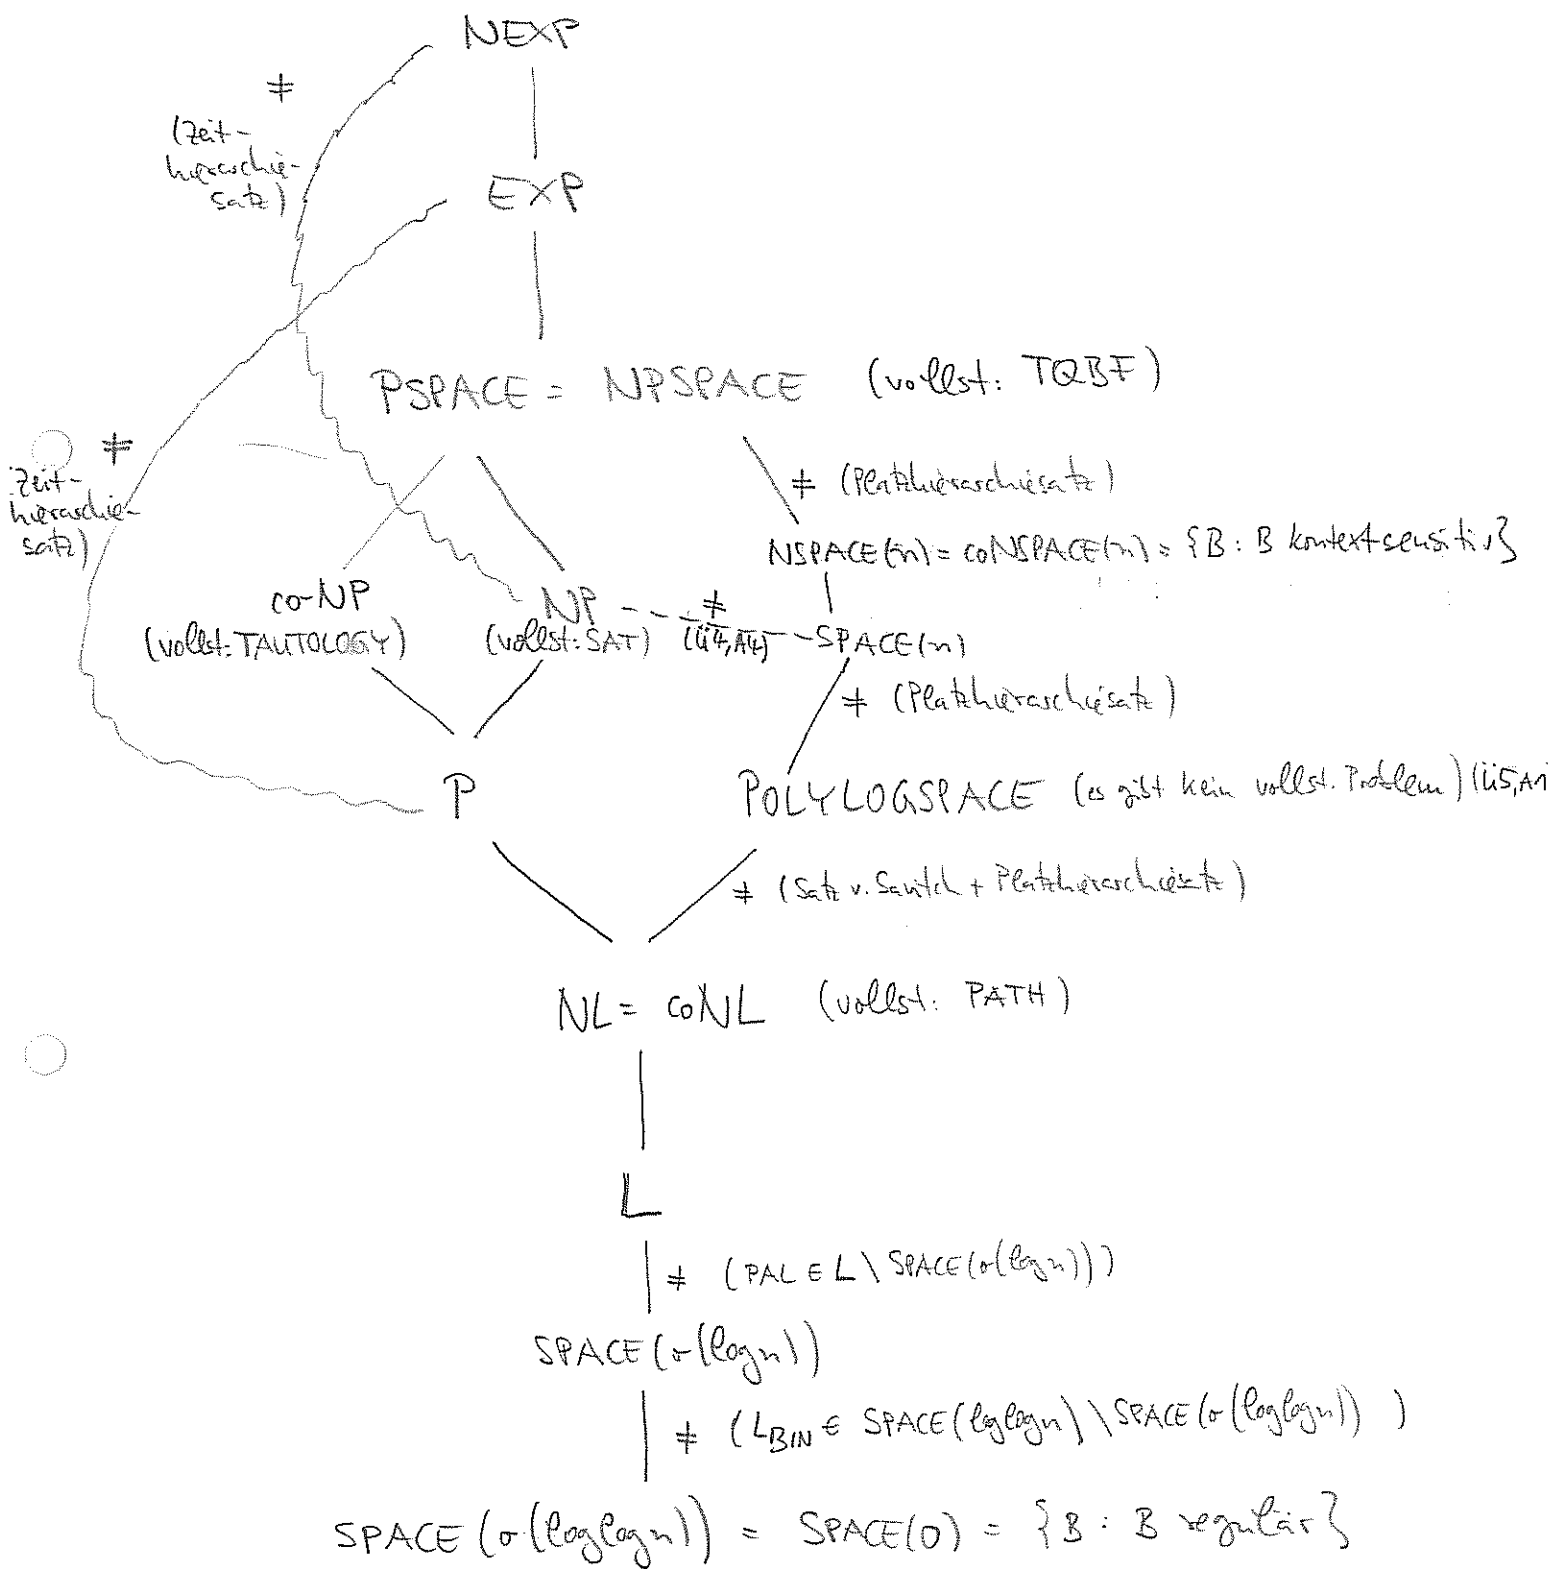 NEXP
≠
(Zeit-
hierarchie-
satz)
EXP
PSPACE = NPSPACE (vollst: TQBF)
≠
Zeit-
hierarchie-
satz)
≠ (Platzhierarchiesatz)
NSPACE(n) = coNSPACE(n) = {B : B kontextsensitiv}
co-NP
(vollst: TAUTOLOGY)
NP
(vollst: SAT)
≠
(Ü4,A4)
SPACE(n)
≠ (Platzhierarchiesatz)
P
POLYLOGSPACE (es gibt kein vollst. Problem) (Ü5,A1
≠ (Satz v. Savitch + Platzhierarchiesatz)
NL = coNL (vollst: PATH)
L
≠ (PAL ∈ L \ SPACE(o(log n)))
SPACE(o(log n))
≠ (L_BIN ∈ SPACE(loglog n) \ SPACE(o(loglog n)) )
SPACE(o(loglog n)) = SPACE(0) = {B : B regulär}